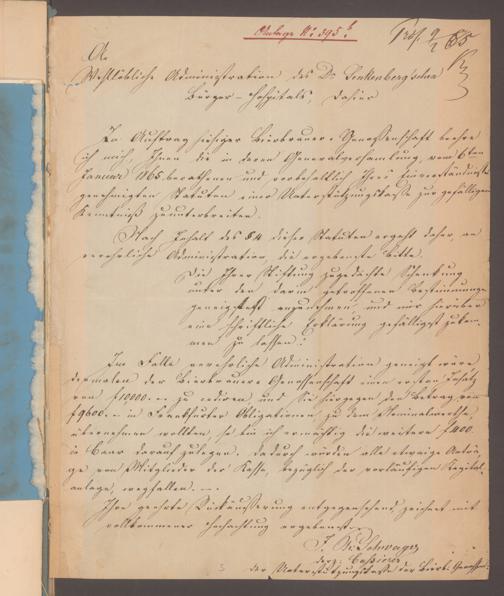 Anlage No 595 b.
Präs. 9/2 65
An
Wohllöbliche Administration des Dr. Senkenberg'schen
Bürger-Hospitals, dahier
Im Auftrag hiesiger Bierbrauer-Genossenschaft beehre
ich mich, Ihnen die in deren Generalversammlung, vom 6ten
Januar 1865 berathenen und vorbehaltlich Ihres Einverständnisses
genehmigten Statuten einer Unterstützungskasse zur gefälligen
Kenntniß zu unterbreiten.
Nach Inhalt des § 4 dieser Statuten ergeht daher, an
verehrliche Administration, die ergebenste Bitte
die Ihrer Stiftung zugedachte Schenkung
unter den darin getroffenen Bestimmungen
geneigtest anzunehmen und mir hierüber
eine schriftliche Erklärung gefälligst zukom-
men zu lassen.
Im Falle verehrliche Administration geneigt wäre
dermalen der Bierbrauer Genossenschaft einen ersten Insatz
von f 10000.- zu cediren, und Sie hiergegen den Betrag von
f 9600.- in Frankfurter Obligationen zu dem Nominalwerthe,
übernehmen wollten, so bin ich ermächtigt die weitere f 400.
in Baar darauf zulegen. dadurch würden alle etwaige Anträ-
ge von Mitglieder der Kasse, bezüglich der vorläufigen Kapital-
anlage, wegfallen.
Ihre geehrte Rückäußerung entgegensehend zeichnet mit
vollkommener Hochachtung ergebenst
Schwager
derz. Cassirer
der Unterstützungskasse der Bierbr. Genossensch.